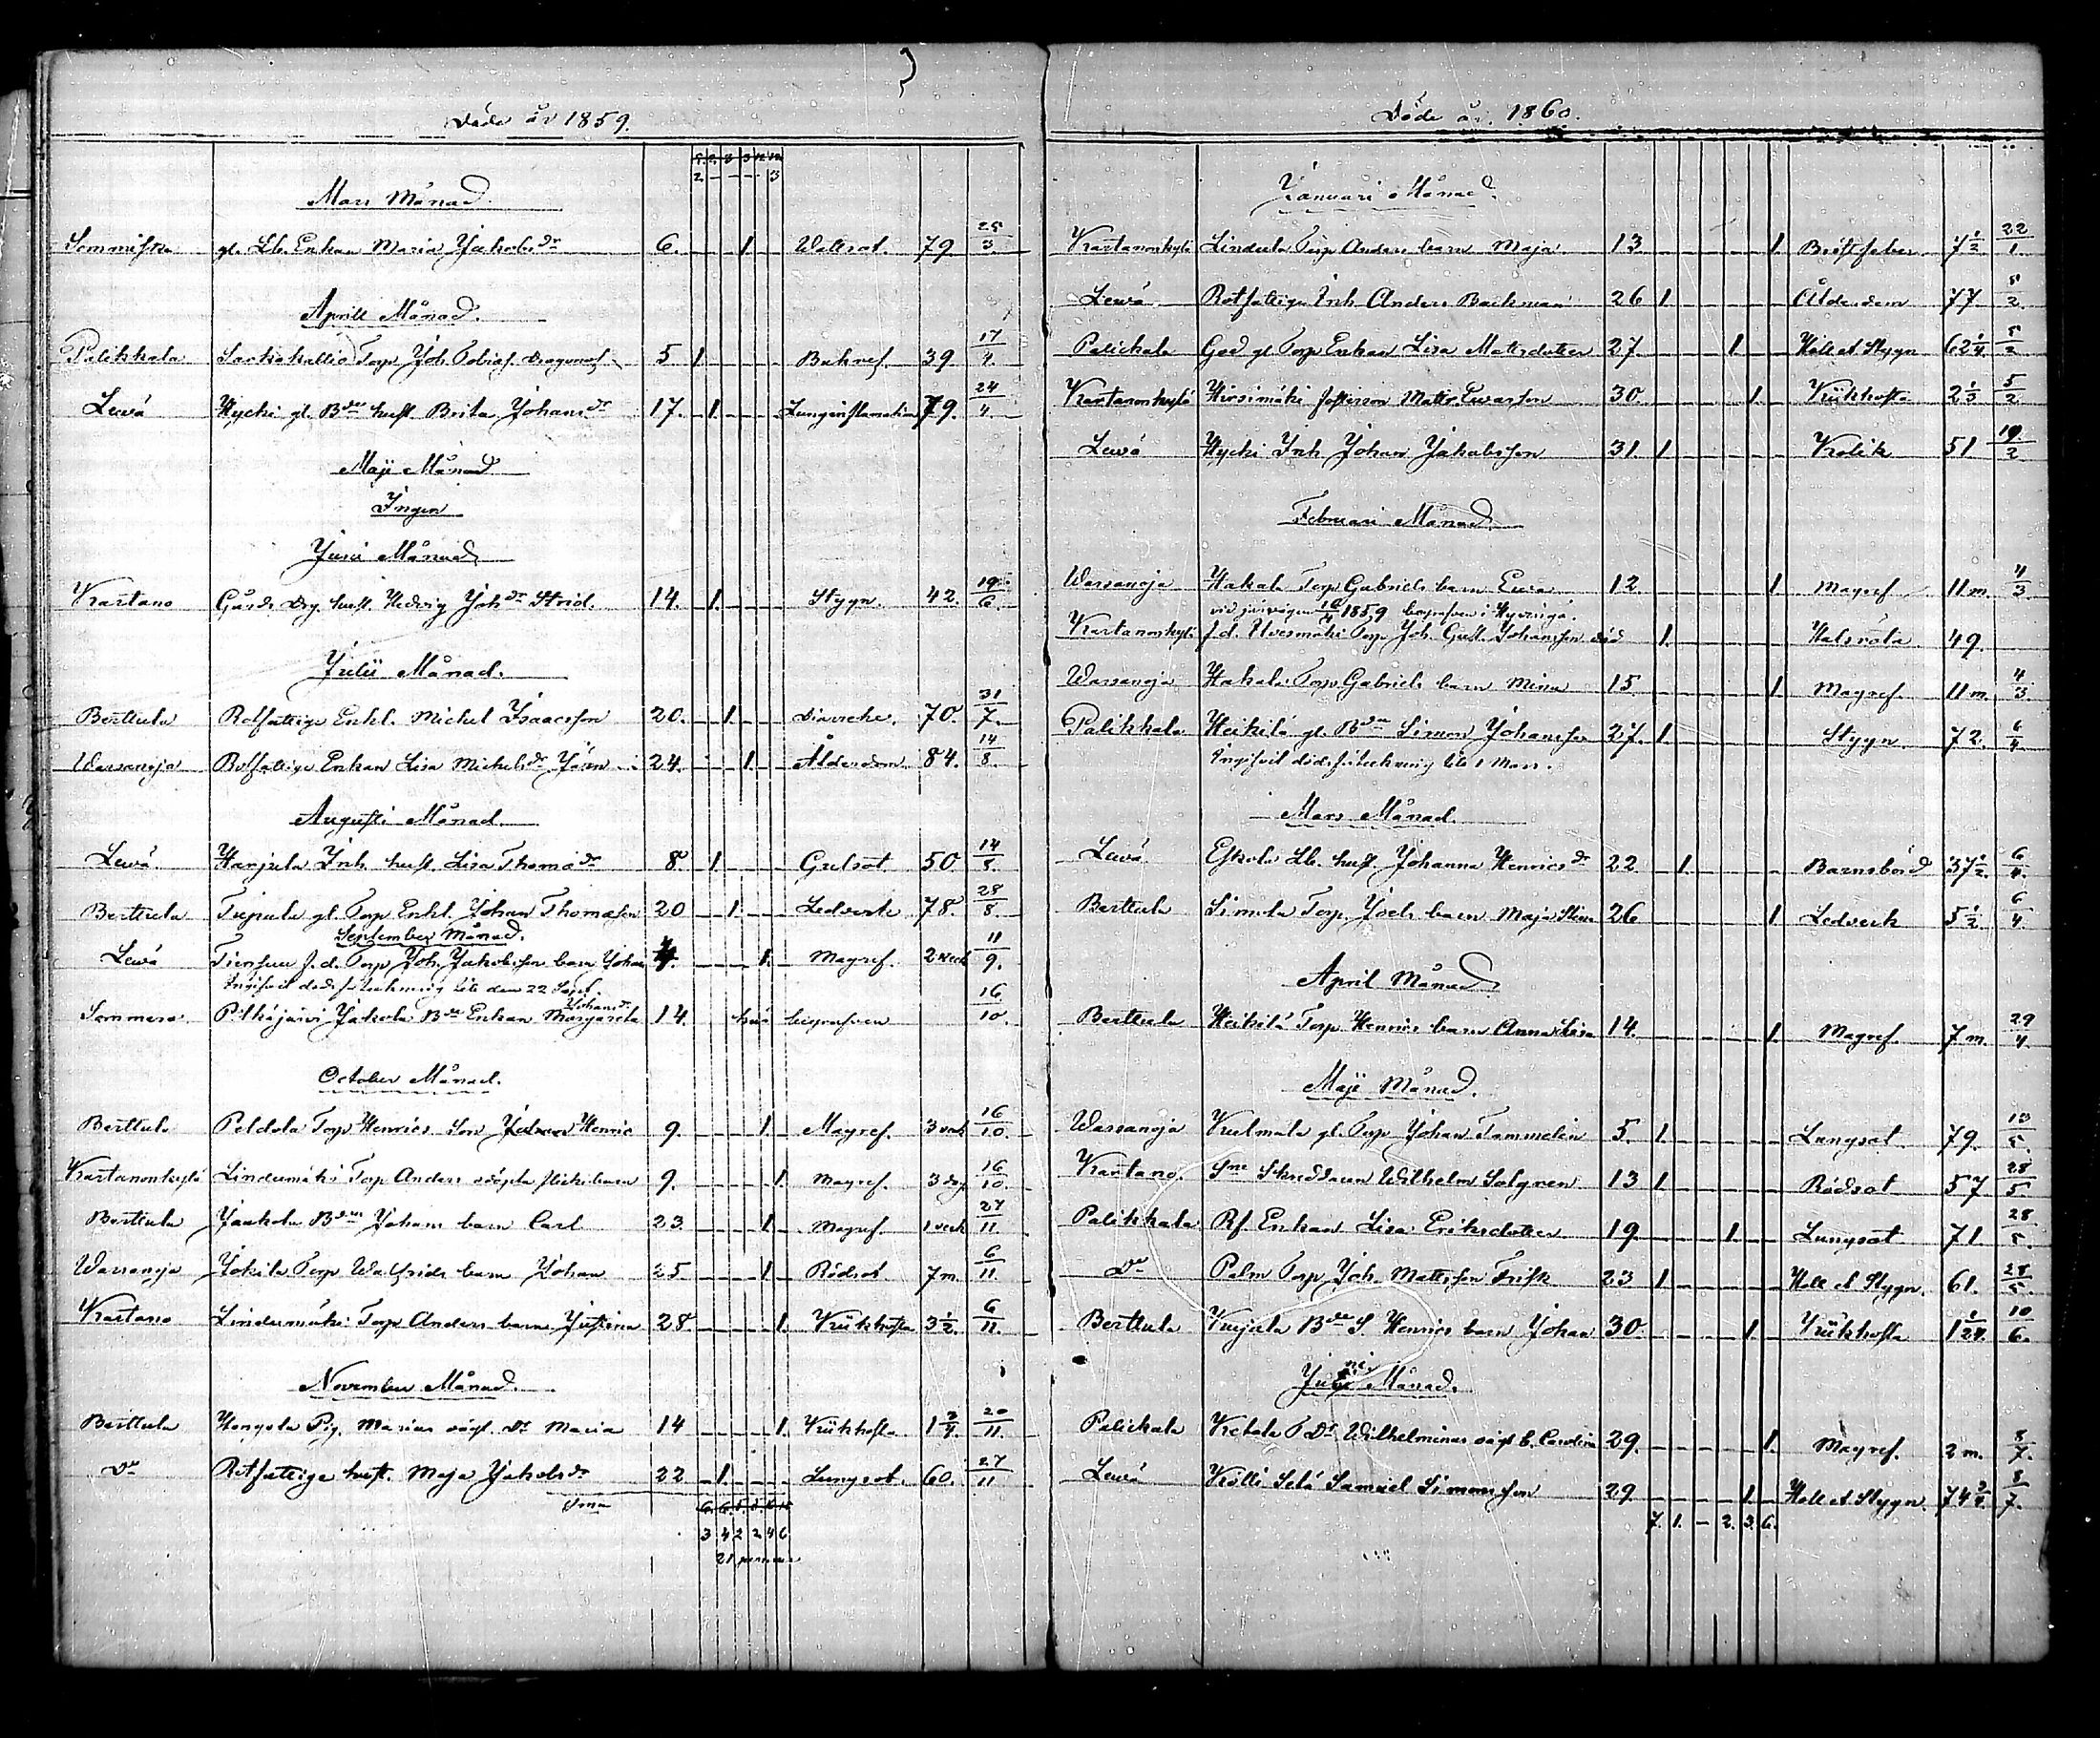 Döde år 1859.
8. 2. 3 3 12 12
2 - - - - 3
Mars Månad.
Sommistra gl. Lb. Enkan Maria Jakobsdr 6. 1 Wattsot. 79. 25/3.
Aprill Månad.
Palikkala Torp Joh. 5 1 39 17/4.
Lewä Hycki gl. Bdn hust. Brita Johansdr 17. 1 Lunginflamation 79. 24/4.
Maji Månad
Ingen
Juni Månad
Kartano Gårds Drg. hust. Hedvig Johdr Strid. 14. 1. Stygn. 42. 19/6.
Julii Månad.
Berttula Rotfattige Enkl. Michel Isaacsson 20. 1. 70. 31/7.
Warsanoja Rotfattige Enkan Lisa Michelsdr 24. 1. Ålderdom. 84. 14/8.
Augusti Månad.
Lewä. Harjula Inh. hust. Lisa Thomædr 8. 1. Gulsot. 50. 14/8.
Berttula gl. Torp Enkl. Johan Thomæson 20 1. Ledverk 78. 28/8.
September Månad.
Lewä f.d. Torp Joh. Jakobsson barn Johan 1. Magref. 2 veck 11/9.
den 22 Sept.
Johansdr
Sommero Jakola Bde Enkan Margareta 14. här begrafven 16/10.
October Månad.
Berttula Peldola Torp Henrics Son Henric 9. 1. Magref. 3 veck 16/10.
Kartanonkylä Lindumäki Torp Anders odöpta flickebarn 9. 1. Magref. 3 dag 16/10.
Berttula Jaakola Bdns Johans barn Carl 23. 1. Magref. 1 veck 27/11.
Warsanoja Jokila Torp Walfrids barn Johan 25 1 Rödsot 7 m. 6/11.
Kartano Lindumäki Torp Anders barn Justina 28. 1. Kikhosta 3 1/2. 6/11.
November Månad.
Berttula Pig. Marias oägt. Dr Maria 14 1. Kikhosta 1 3/4. 20/11.
Do Rotfattige hust. Maja Jakobsdr 22. 1. Lungsot. 60. 27/11
Sma
3 4 2 2 4 6
21 personer
Döde år. 1860.
Januari Månad.
Kartanonkylä Lindula Torp Anders barn Maja 13. 1. Bröstfeber 7 1/2 22/1.
Lewä Rotfattige Inh. Anders Backman 26 1. Ålderdom 77 5/2
Palickala God gl. Torp Enkan Lisa Mattsdotter 27. 1 Håll et Stygn 62 1/4 5/2
Kartanonkylä Hirsimäki Matts 30 1. Kikhosta 2 1/3 5/2
Lewä Hycki Inh Johan Jakobsson 31. 1 Kolik 51 19/2
Februari Månad.
Warsanoja Hakala Torp Gabriels barn Ewa 12. 1 Magref 11 m. 4/3
1859 begrafven i Hyvinge.
Kartanonkylä f.d. Torp Joh. Gust. Johansson död 1. Halsröta 49.
Warsanoja Hakala Torp Gabriels barn Mina 15 1 Magref 11 m. 4/3
Palikkala Heikilä gl. Bdn Simon Johansson 27. 1. Stygn 72. 6/4
1 Mars.
Mars Månad.
Lewä Eskola Lb. hust Johanna Henricsdr 22 1. Barnsbörd 37 1/2. 6/4.
Berttula Simola Torp Joels barn Maja Stina 26 1 Ledverk 5 1/2 6/4.
April Månad
Berttula Heikilä Torp Henrics barn Anna Lisa 14. 1. Magref 7 m. 29/4.
Maji Månad.
Warsanoja Kulmala gl. Torp Johan Tammelin 5. 1. Lungsot 79. 13/5.
Kartano. Sne Skreddaren Wilhelm Solgren 13 1. Rödsot 57 28/5.
Palikkala Rf. Enkan Lisa Eriksdotter 19 1. Lungsot 71. 28/5.
Do Palm Torp Joh. Mattsson Frisk 23 1. Håll et Stygn. 61. 28/5.
Berttula Bde S. Henrics barn Johan 30. 1. Kikhosta 1 1/24. 10/6.
Juni Månad.
Palickala Ketola Wilhelminas oägt b. Carolina 29. 1. Magref. 2 m. 8/7.
Lewä Kölli Samuel Simonsson 29. 1. Håll et Stygn 74 3/4. 8/7.
7. 1. - 2. 3. 6.